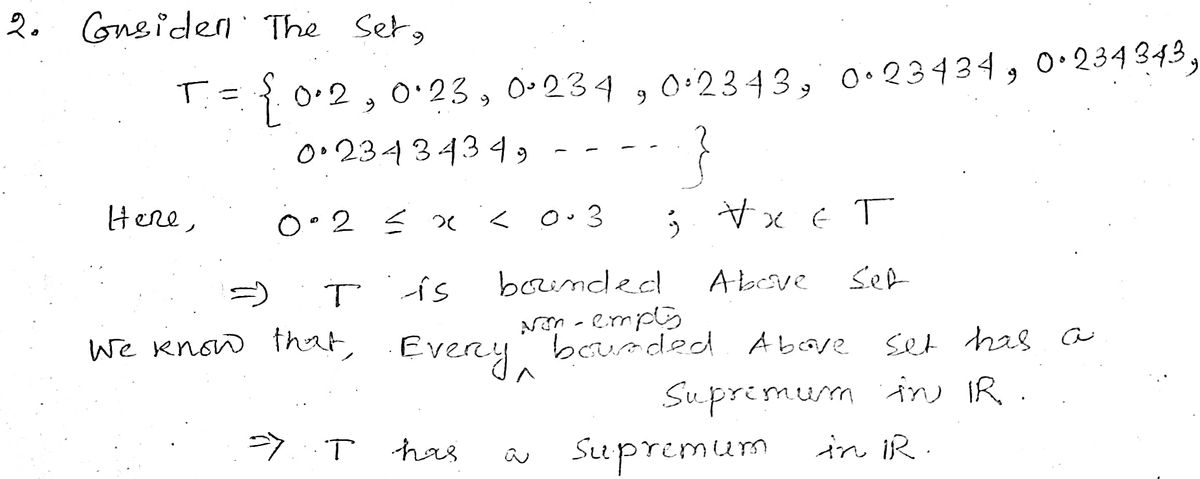 2. Consider The Set,
T = { 0.2, 0.23, 0.234, 0.2343, 0.23434, 0.234343,
0.2343434, ----- }
Here, 0.2 ≤ x < 0.3 ; ∀ x ∈ T
⇒ T is bounded Above Set
We know that, Every non-empty bounded Above set has a
Supremum in IR.
⇒ T has a Supremum in IR.